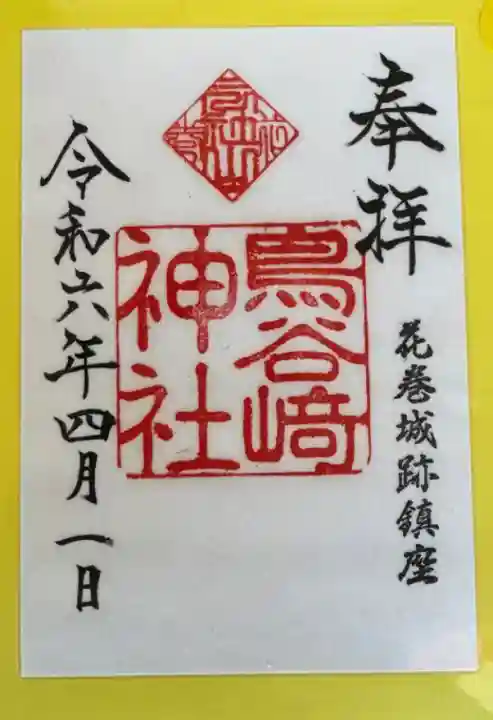 奉拝
花巻城跡鎮座
鳥谷﨑
神社
令和六年四月一日